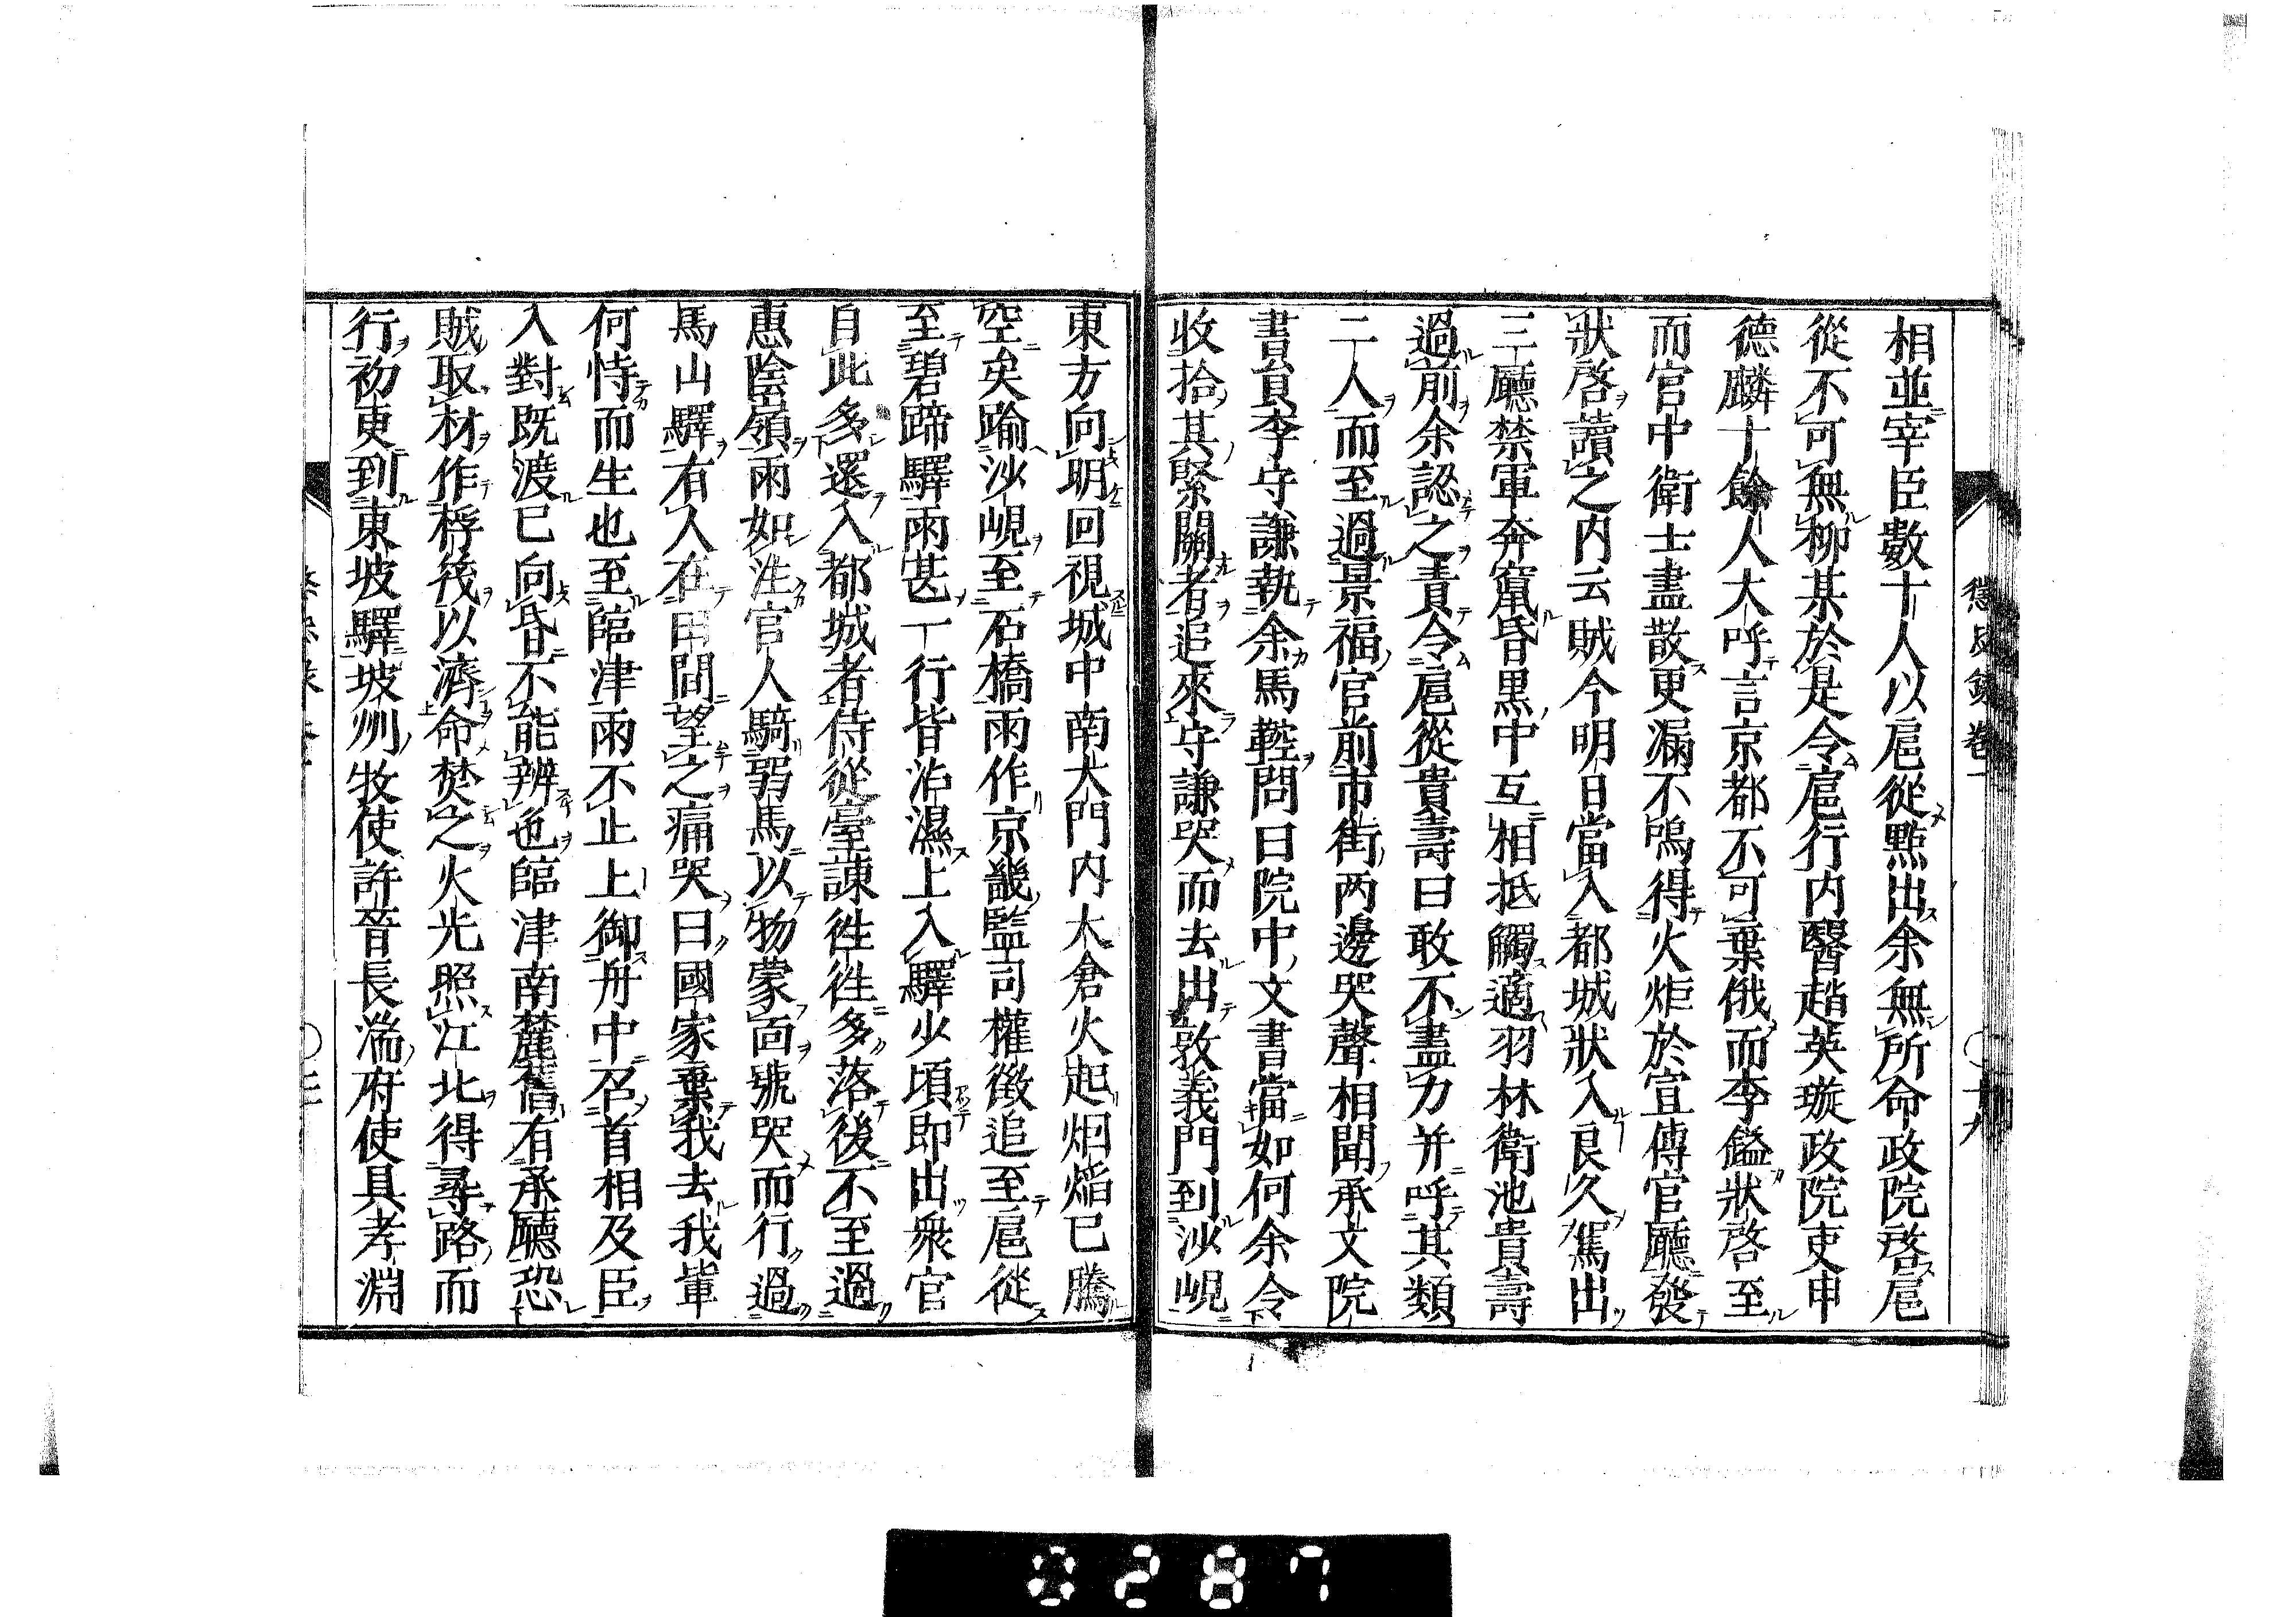 懲毖録卷一
〇十九
相並宰臣數十人以扈從點出余無所命政院啓扈
從不可無柳某於是令扈行内醫趙英璇政院吏申
德麟十餘人大呼言京都不可棄俄而李鎰狀啓至
而官中衛士盡散更漏不鳴得火炬於宣傳官廳發
狀啓讀之内云賊今明日當入都城狀入良久駕出
三廳禁軍奔竄昏黒中互相抵觸適羽林衛池貴壽
過前余認之責令扈從貴壽曰敢不盡力并呼其類
二人而至過景福宮前市街両邊哭聲相聞承文院
書員李守謙執余馬鞚問曰院中文書當如何余令
收拾其緊關者追來守謙哭而去出敦義門到沙峴
東方向明回視城中南大門内大倉火起烟焔已騰
空矣踰沙峴至石橋雨作京畿監司權徵追至扈從
至碧蹄驛雨甚一行皆沾濕上入驛少頃即出衆官
自此多還入都城者侍從臺諫徃徃多落後不至過
惠陰嶺雨如注官人騎弱馬以物蒙面號哭而行過
馬山驛有人在田間望之痛哭曰國家棄我去我輩
何恃而生也至臨津雨不止上御舟中召首相及臣
入對既渡已向昏不能辨色臨津南麓舊有承廳恐
賊取材作桴筏以濟命焚之火光照江北得尋路而
行初更到東坡驛坡州牧使許晉長湍府使具孝淵